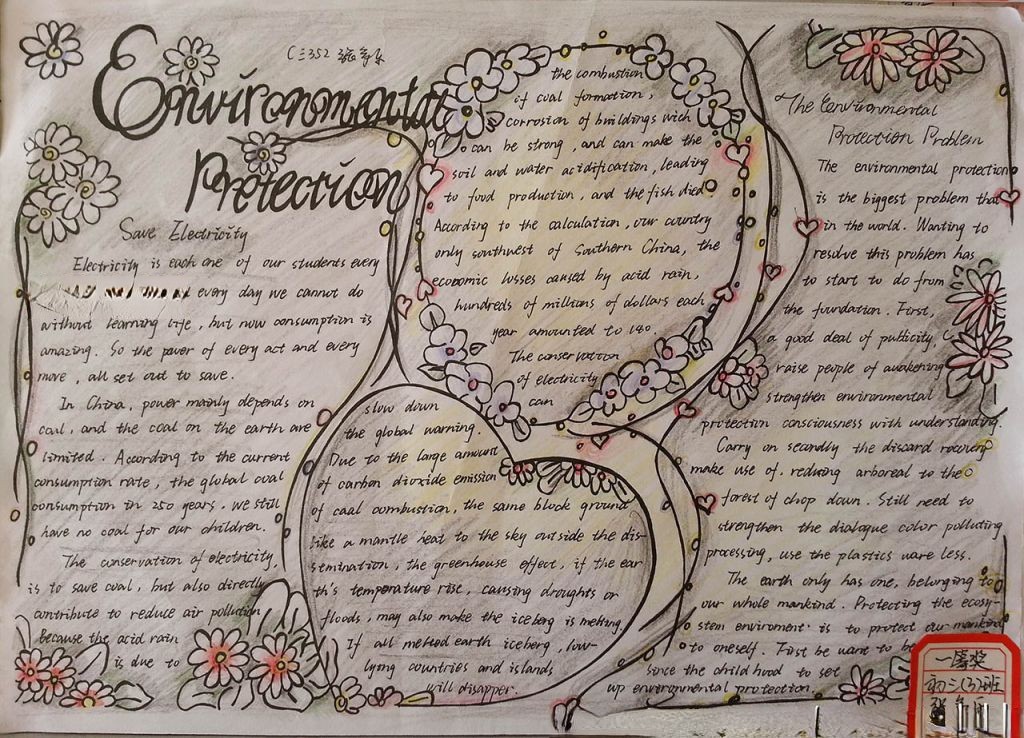 Environmental
Protection
C三352
Save Electricity
Electricity is each one of our students every
every day we cannot do
without learning life, but now consumption is
amazing. So the power of every act and every
move, all set out to save.
In China, power mainly depends on
coal, and the coal on the earth are
limited. According to the current
consumption rate, the global coal
consumption in 250 years. We still
have no coal for our children.
The conservation of electricity,
is to save coal, but also directly
contribute to reduce air pollution
Because the acid rain
is due to
the combustion
if coal formation,
corrosion of buildings wich
can be strong, and can make the
soil and water acidification, leading
to food production, and the fish died
According to the calculation, our country
only southwest of Southern China, the
economic losses caused by acid rain,
hundreds of millions of dollars each
year amounted to 140.
The conservation
of electricity
can
slow down
the global warning.
Due to the large amount
of carbon dioxide emission
of caal combustion, the same block ground
like a mantle heat to the sky outside the dis-
stmination, the greenhouse effect, if the ear
th's temperature rise, causing droughts or
floods, may also make the iceberg is melting
If all melted earth iceberg, low-
lying countries and islands
will disapper.
The Environmental
Protection Problem
The environmental protection
is the biggest problem that
in the world. Wanting to
resolve this problem has
to start to do from
the foundation. First,
a good deal of publicity,
raise people of awakening
strengthen environmental
protection consciousness with understanding.
Carry on secondly the discard
make use of, reducing arboreal to the
forest of chop down. Still need to
strengthen the dialogue color polluting
processing, use the plastics ware less.
The earth only has one, belonging to
our whole mankind. Protecting the ecosy-
stem enviroment is to protect our mankind
to oneself. First be want to be
since the child hood to set
up environmental protection.
一等奖
初三(3)班